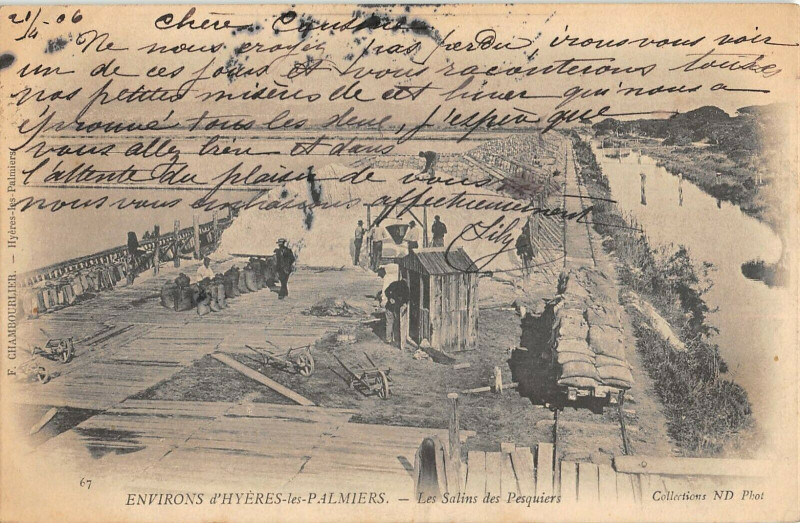 21/4 - 06 Chère Cousine
Ne nous croyez pas perdu, irons vous voir
un de ces jours et vous raconterons toutes
nos petites misères de cet hiver qui nous a
éprouvé tous les deux, j'espère que
vous allez bien et dans
l'attente du plaisir de vous
nous vous embrassons affectueusement
Lily
F. CHAMBOURLIER. — Hyères-les-Palmiers
67
ENVIRONS d'HYÈRES-les-PALMIERS. — Les Salins des Pesquiers
Collections ND Phot